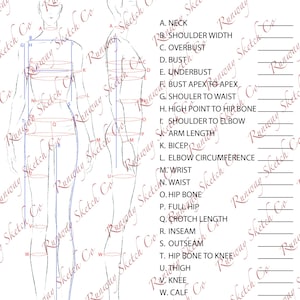 A. NECK
B. SHOULDER WIDTH
C. OVERBUST
D. BUST
E. UNDERBUST
F. BUST APEX TO APEX
G. SHOULER TO WAIST
H. HIGH POINT TO HIP BONE
I. SHOULDER TO ELBOW
J. ARM LENGTH
K. BICEP
L. ELBOW CIRCUMFERENCE
M. WRIST
N. WAIST
O. HIP BONE
P. FULL HIP
Q. CROTCH LENGTH
R. INSEAM
S. OUTSEAM
T. HIP BONE TO KNEE
U. THIGH
V. KNEE
W. CALF
Runway Sketch Co.